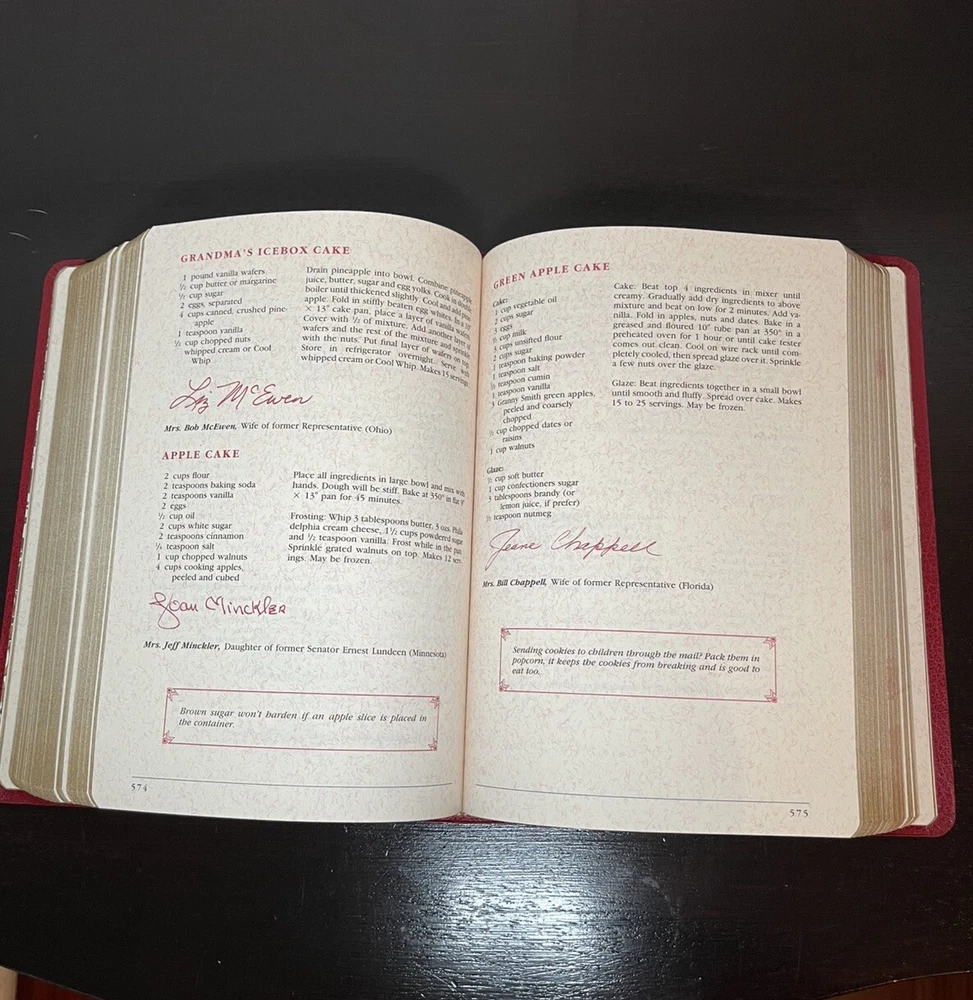 GRANDMA'S ICEBOX CAKE
1 pound vanilla wafers
½ cup butter or margarine
½ cup sugar
2 eggs, separated
4 cups canned, crushed pine-
apple
1 teaspoon vanilla
½ cup chopped nuts
whipped cream or Cool
Whip
Drain pineapple into bowl. Combine pineapple
juice, butter, sugar and egg yolks. Cook in double
boiler until thickened slightly. Cool and add pine-
apple. Fold in stiffly beaten egg whites. In a 10"
× 13" cake pan, place a layer of vanilla wafers
Cover with ½ of mixture. Add another layer of
wafers and the rest of the mixture and sprinkle
with the nuts. Put final layer of wafers on top.
Store in refrigerator overnight. Serve with
whipped cream or Cool Whip. Makes 15 servings.
Liz McEwen
Mrs. Bob McEwen, Wife of former Representative (Ohio)
APPLE CAKE
2 cups flour
2 teaspoons baking soda
2 teaspoons vanilla
2 eggs
½ cup oil
2 cups white sugar
2 teaspoons cinnamon
teaspoon salt
1 cup chopped walnuts
4 cups cooking apples,
peeled and cubed
Place all ingredients in large bowl and mix with
hands. Dough will be stiff. Bake at 350° in flat 9"
× 13" pan for 45 minutes.
Frosting: Whip 3 tablespoons butter, 3 ozs. Phila-
delphia cream cheese, 1½ cups powdered sugar
and ½ teaspoon vanilla. Frost while in the pan.
Sprinkle grated walnuts on top. Makes 12 serv-
ings. May be frozen.
Joan Minckler
Mrs. Jeff Minckler, Daughter of former Senator Ernest Lundeen (Minnesota)
Brown sugar won't harden if an apple slice is placed in
the container.
574
GREEN APPLE CAKE
Cake:
1 cup vegetable oil
2 cups sugar
3 eggs
cup milk
cups unsifted flour
2 cups sugar
1 teaspoon baking powder
1 teaspoon salt
teaspoon cumin
teaspoon vanilla
3 Granny Smith green apples,
peeled and coarsely
chopped
cup chopped dates or
raisins
1 cup walnuts
Glaze:
cup soft butter
1 cup confectioners sugar
tablespoons brandy (or
lemon juice, if prefer)
teaspoon nutmeg
Cake: Beat top 4 ingredients in mixer until
creamy. Gradually add dry ingredients to above
mixture and beat on low for 2 minutes. Add va-
nilla. Fold in apples, nuts and dates. Bake in a
greased and floured 10" tube pan at 350° in a
preheated oven for 1 hour or until cake tester
comes out clean. Cool on wire rack until com-
pletely cooled, then spread glaze over it. Sprinkle
a few nuts over the glaze.
Glaze: Beat ingredients together in a small bowl
until smooth and fluffy. Spread over cake. Makes
15 to 25 servings. May be frozen.
Jeane Chappell
Mrs. Bill Chappell, Wife of former Representative (Florida)
Sending cookies to children through the mail? Pack them in
popcorn, it keeps the cookies from breaking and is good to
eat too.
575